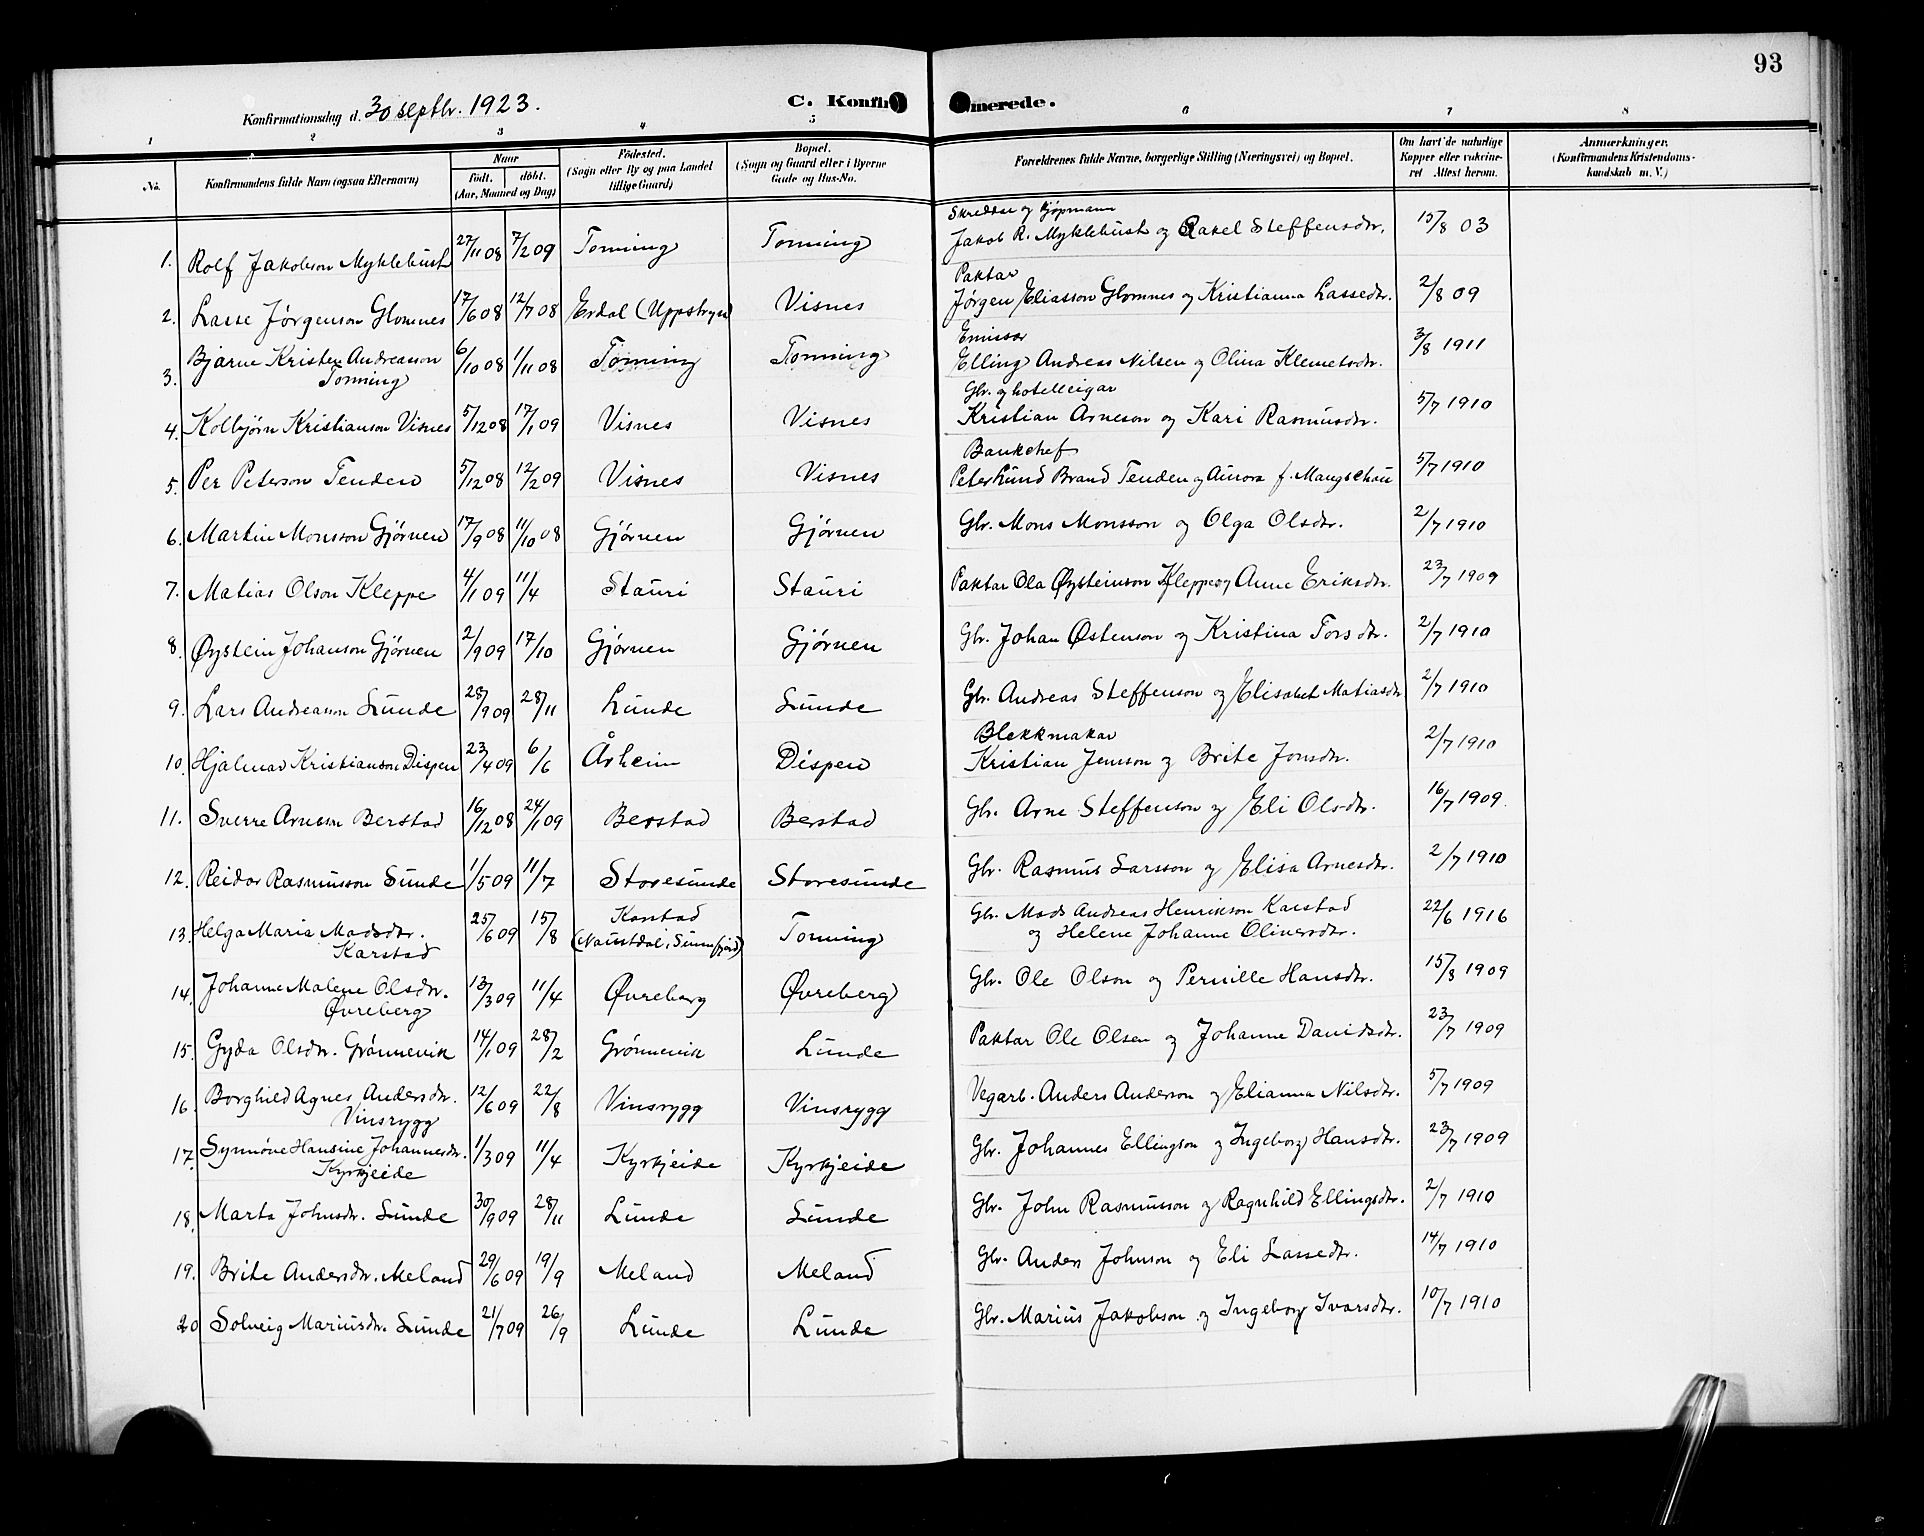 93
Konfirmationsdag d. 30 septbr. 1923.
C. Konfirmerede.
1 2 3 4 5 6 7 8
No. Konfirmandens fulde Navn (ogsaa Efternavn) Naar født. døbt. (Aar, Maaned og Dag) Fødested. (Sogn eller By og paa Landet tillige Gaard) Bopæl. (Sogn og Gaard eller i Byerne Gade og Hus-No. Forældrenes fulde Navne, borgerlige Stilling (Næringsvei) og Bopæl. Om havt de naturlige Kopper eller vakcineret. Attest herom. Anmerkninger. (Konfirmandens Kristendomskundskab m. V.)
1. Rolf Jakobson Myklebust 27/11 08 7/2 09 Tonning Tonning Skreddar og kjøpmann Jakob R. Myklebust og Rakel Steffensdtr. 15/8 03
2. Lasse Jørgenson Glomnes 17/6 08 12/7 08 Erdal (Uppstryn) Visnes Paktar Jørgen Eliasson Glomnes og Kristianna Lassedtr. 2/8 09
3. Bjarne Kristen Andreasson Tonning 6/10 08 1/11 08 Tonning Tonning Emissær Elling Andreas Nilsen og Olina Klemetsdtr. 3/8 1911
4. Kolbjørn Kristianson Visnes 5/12 08 17/1 09 Visnes Visnes Gbr. og hotelleigar Kristian Arneson og Kari Rasmusdtr. 5/7 1910
5. Per Peterson Tenden 5/12 08 12/2 09 Visnes Visnes Bankchef Peter Lund Brand Tenden og Aurora f. Maugschau 5/7 1910
6. Martin Monsson Gjørven 17/9 08 11/10 08 Gjørven Gjørven Gbr. Mons Monsson og Olga Olsdtr. 2/7 1910
7. Matias Olson Kleppe 4/1 09 11/4 Stauri Stauri Paktar Ola Øysteinson Kleppe og Anne Eriksdtr. 23/7 1909
8. Øystein Johanson Gjørven 2/9 09 17/10 Gjørven Gjørven Gbr. Johan Østenson og Kristina Torsdtr. 2/7 1910
9. Lars Andreasson Sunde 28/9 09 28/11 Sunde Sunde Gbr. Andreas Steffenson og Elisabet Matiasdtr 2/7 1910
10. Hjalmar Kristianson Dispen 23/4 09 6/6 Årheim Dispen Blekkmakar Kristian Jensson og Brite Jonsdtr. 2/7 1910
11. Sverre Arneson Berstad 16/12 08 24/1 09 Berstad Berstad Gbr. Arne Steffenson og Eli Olsdtr. 16/7 1909.
12. Reidar Rasmusson Sunde 1/5 09 11/7 Storesunde Storesunde Gbr. Rasmus Larsson og Elisa Arnesdtr. 2/7 1910
13. Helga Maria Madsdtr. Karstad 25/6 09 15/8 Karstad (Naustdal i Sunnfjord) Tonning Gbr. Mads Andreas Henrikson Karstad og Helene Johanne Oliversdtr. 22/6 1916
14. Johanne Malene Olsdtr. Øvreberg 13/3 09 11/4 Øvreberg Øvreberg Gbr. Ole Olson og Pernille Hansdtr. 15/8 1909
15. Gyda Olsdtr. Grønnevik 14/1 09 28/2 Grønnevik Sunde Paktar Ole Olsen og Johanne Davidsdtr. 23/7 1909
16. Borghild Agnes Andersdtr. Vinsrygg 12/6 09 22/8 Vinsrygg Vinsrygg Vegarb. Anders Anderson og Elianna Nilsdtr. 5/7 1909
17. Synnøve Hansine Johannesdtr. Kyrkjeide 1/3 09 11/4 Kyrkjeide Kyrkjeide Gbr. Johannes Ellingson og Ingeborg Hansdtr. 23/7 1909
18. Marta Johnsdtr. Sunde 30/9 09 28/11 Sunde Sunde Gbr. John Rasmusson og Ragnhild Ellingsdtr. 2/7 1910
19. Brite Andersdtr. Meland 29/6 09 19/9 Meland Meland Gbr. Anders Johnson og Eli Lassedtr. 14/7 1910
20 Solveig Mariusdtr. Sunde 21/7 09 26/9 Sunde Sunde Gbr. Marius Jakobson og Ingeborg Ivarsdtr. 10/7 1910